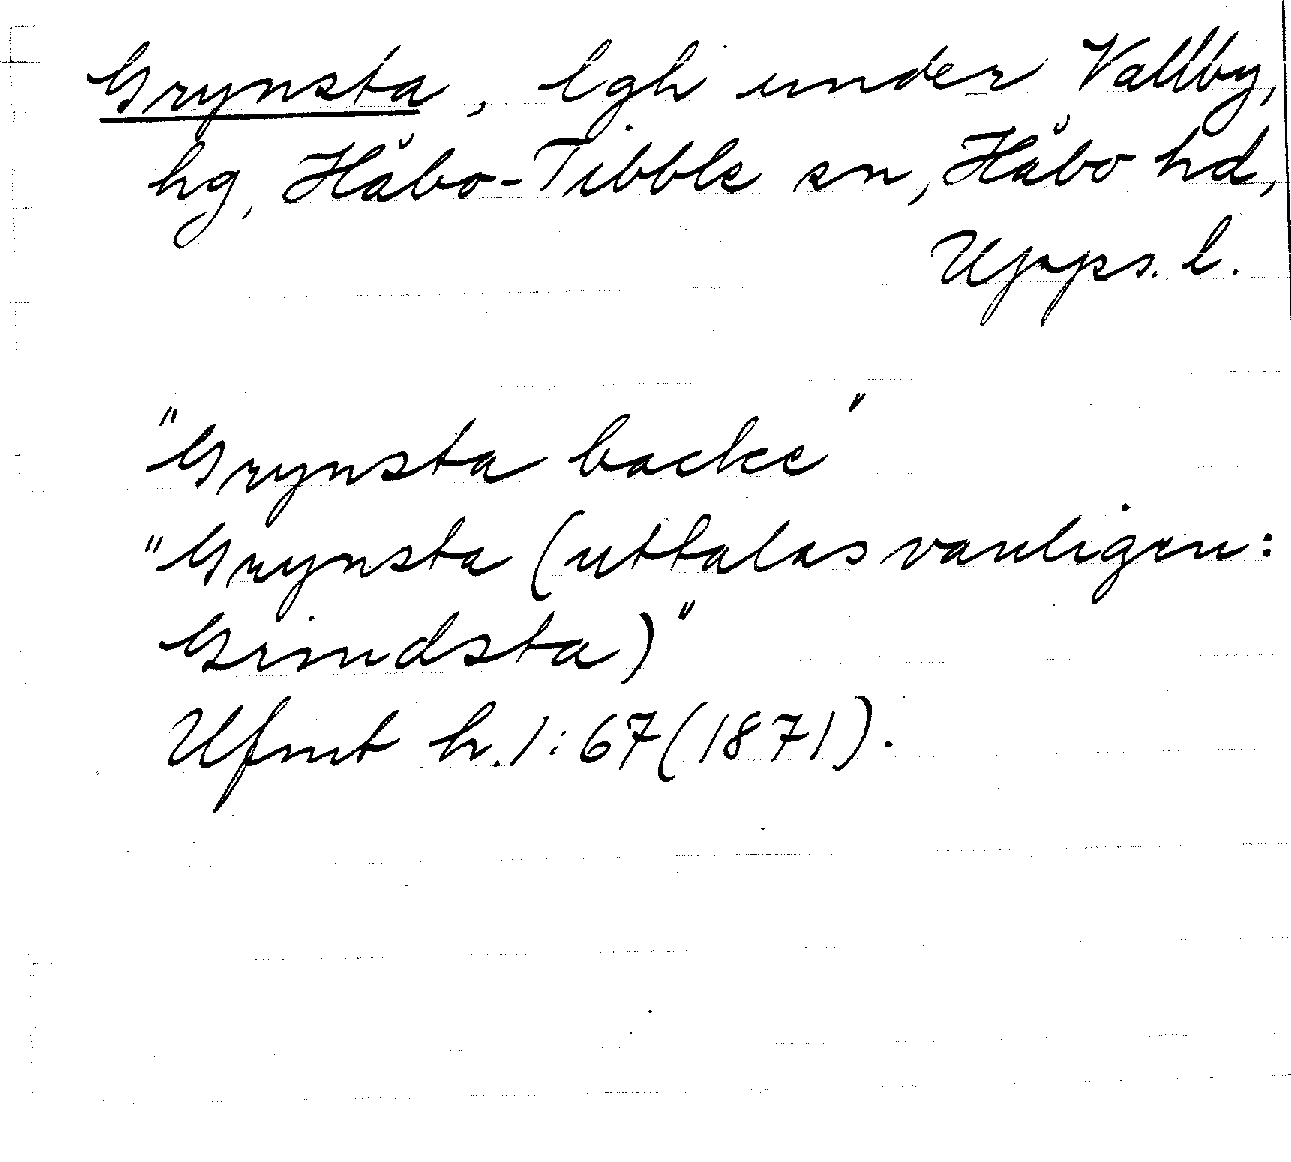 Grynsta, lgh under Vallby,
hg, Håbo-Tibble sn, Håbo hd,
Upps. l.
"Grynsta backe"
"Grynsta (uttalas vanligen:
Grindsta)"
Ufmt h. 1: 67 (1871).